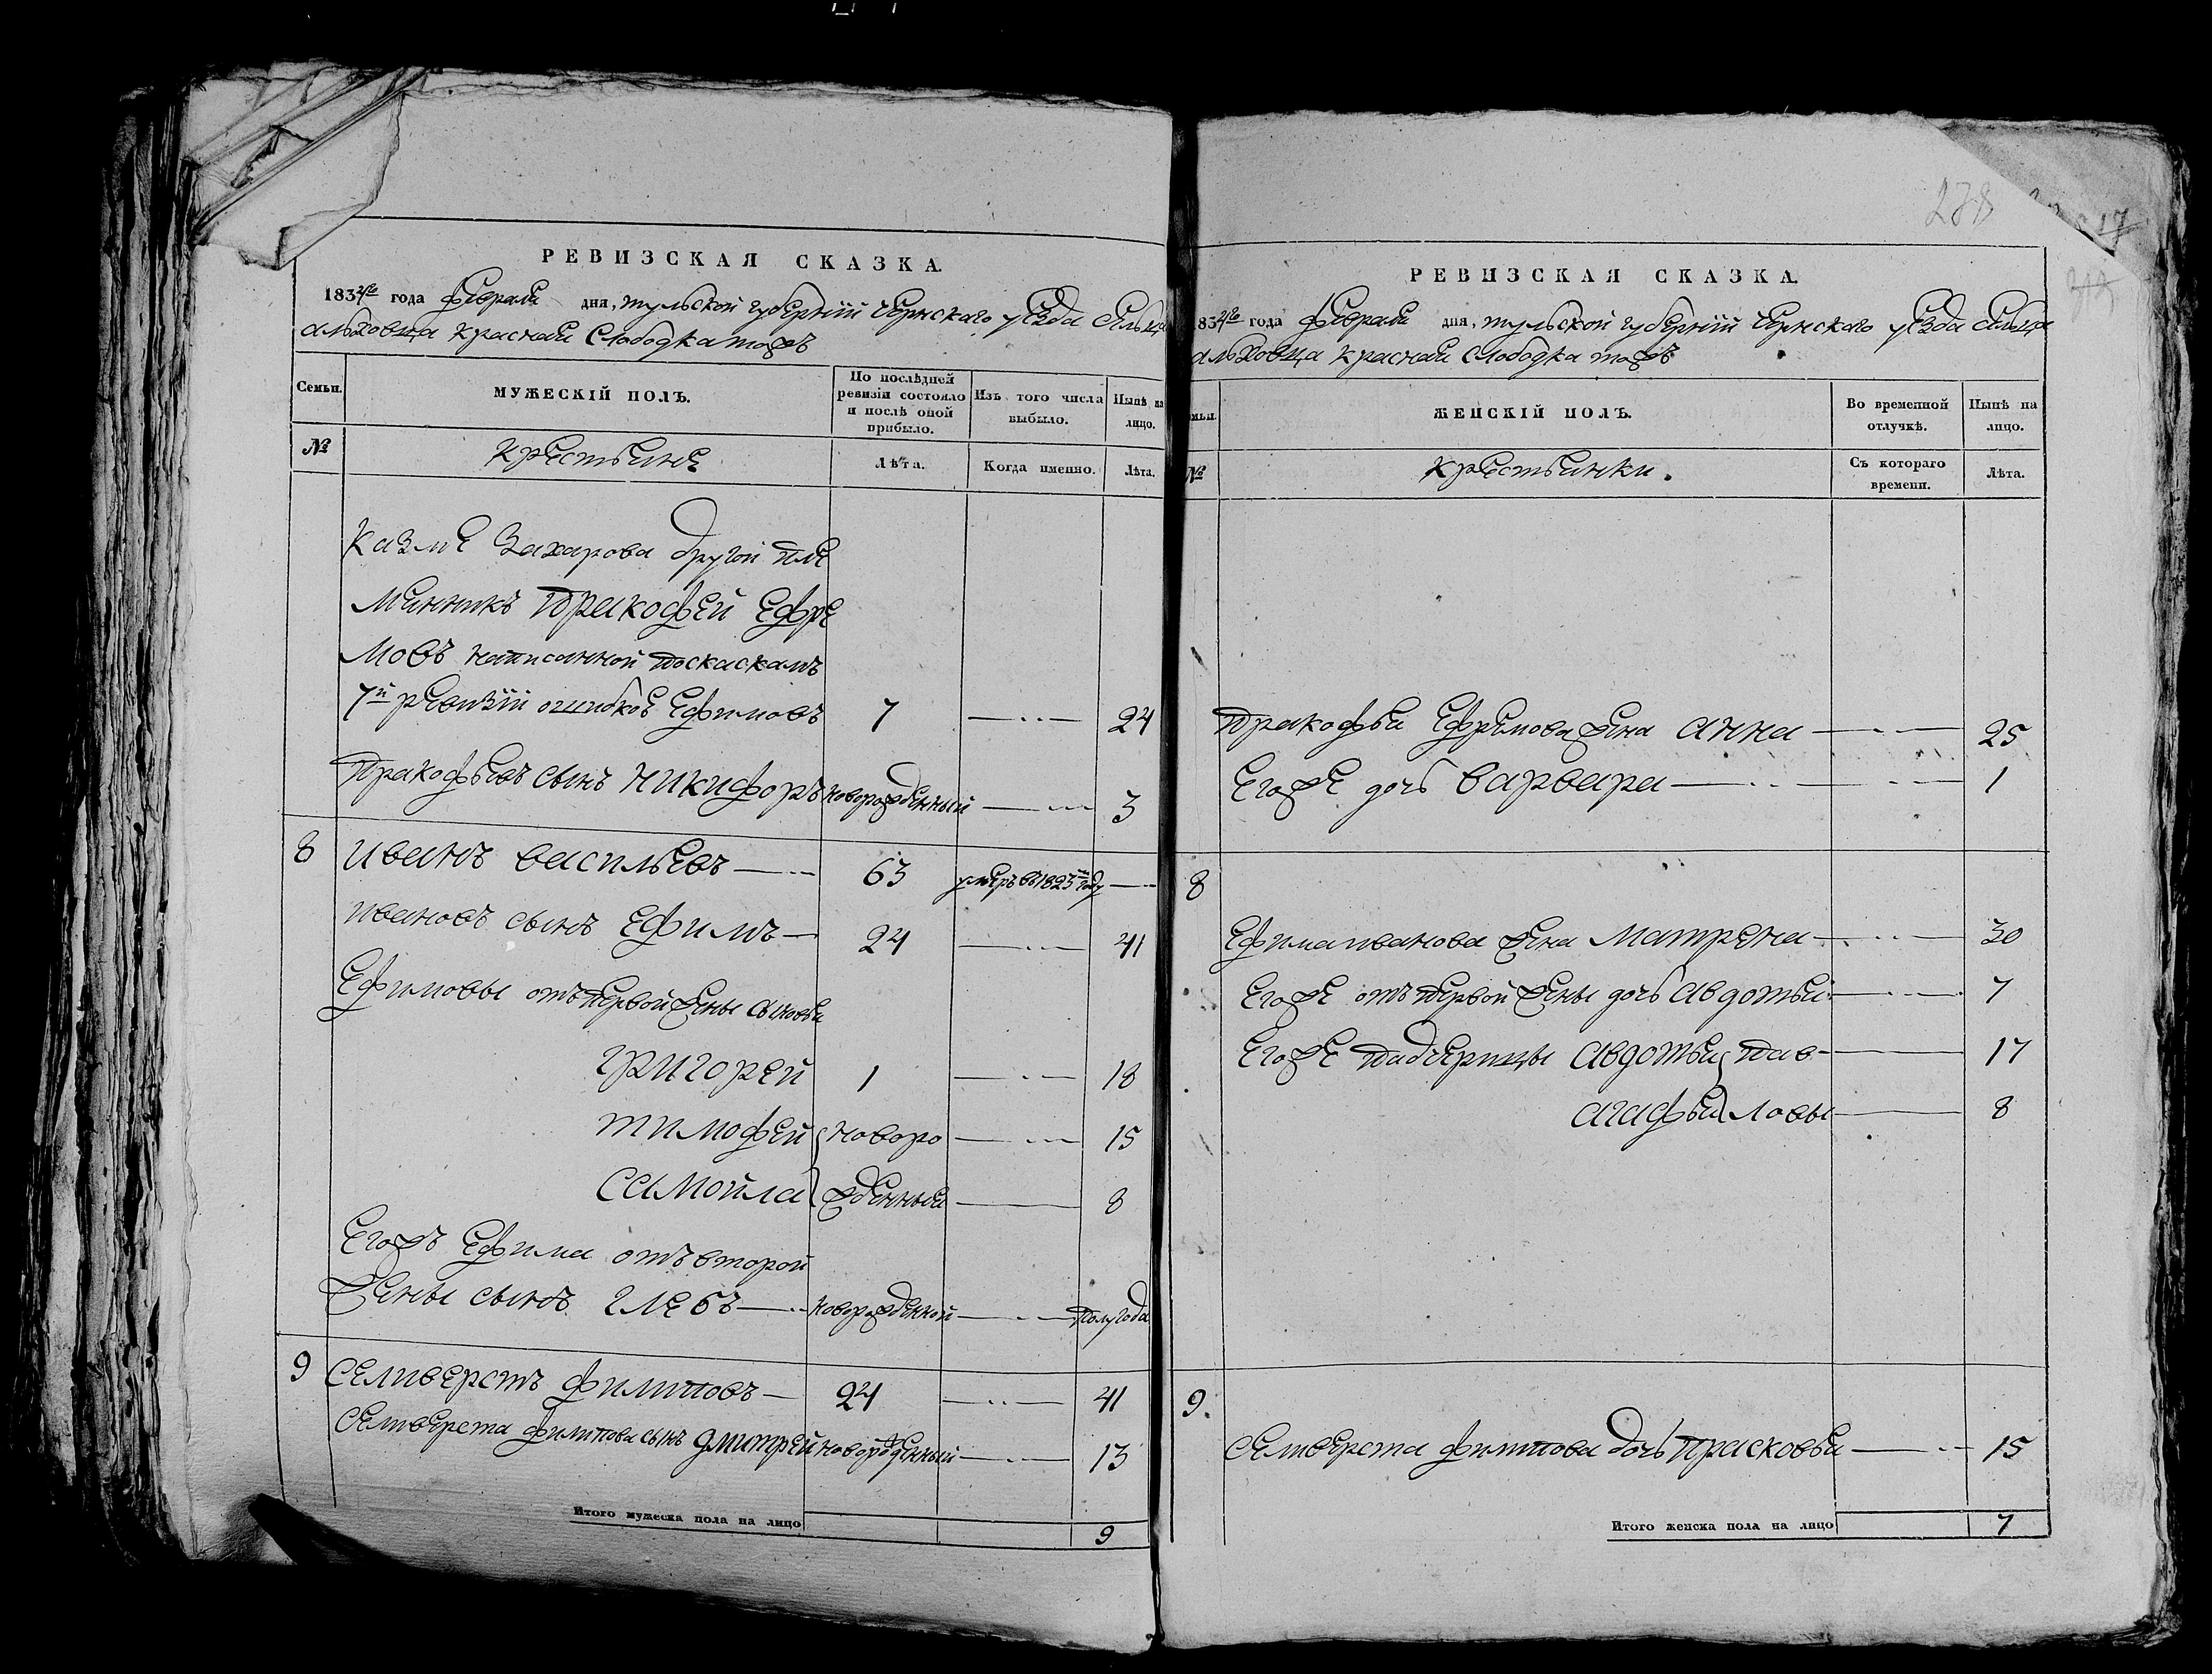 РЕВИЗСКАЯ СКАЗКА.
183 года февраля дня, тульской губернiй чернскаго уезда сельца
альховца красная слободка тожъ
Семьи.
МУЖЕСКIЙ ПОЛЪ.
По послѣдней ревизiи состояло и послѣ оной прибыло.
Изъ того числа выбыло.
Нынѣ на лицо.
№
крестьяне
Лѣта.
Когда именно.
Лѣта.
Казме Захарова другой пле
мянникъ Пракофей Ефре
мовъ написанной поскаскамъ
7й ревизiй ошибкое Ефимовъ 7 24
Пракофьевъ сынъ Никифоръ новорожденный 3
8 Иванъ васильевъ 63 умеръ въ 1823 году
ивановъ сынъ Ефимъ 24 41
Ефимовы отъ первой жены сыновья
григорей 1 18
тимофей новоро 15
самойла жденныя 8
Егожъ Ефима отъ второй
жены сынъ глебъ новорожденной полугода
9 Селиверстъ филиповъ 24 41
Селиверста филипова сынъ дмитрей новорожденный 13
Итого мужеска пола на лицо 9
278
17
РЕВИЗСКАЯ СКАЗКА.
183 года февраля дня, тульской губернiй чернскаго уезда сельца
альховца красная слободка тожъ
ЖЕНСКIЙ ПОЛЪ.
Во временной отлучкѣ.
Нынѣ на лицо.
№
крестьянки.
Съ котораго времени.
Лѣта.
Пракофья Ефремова жена анна 25
Егоже дочь варвара 1
8
Ефима иванова жена матрена 30
Егоже отъ первой жены дочь авдотья 7
Егоже падчерицы авдотья пав- 17
агафья ловы 8
9.
Селиверста филипова дочь прасковья 15
Итого женска пола на лицо 7